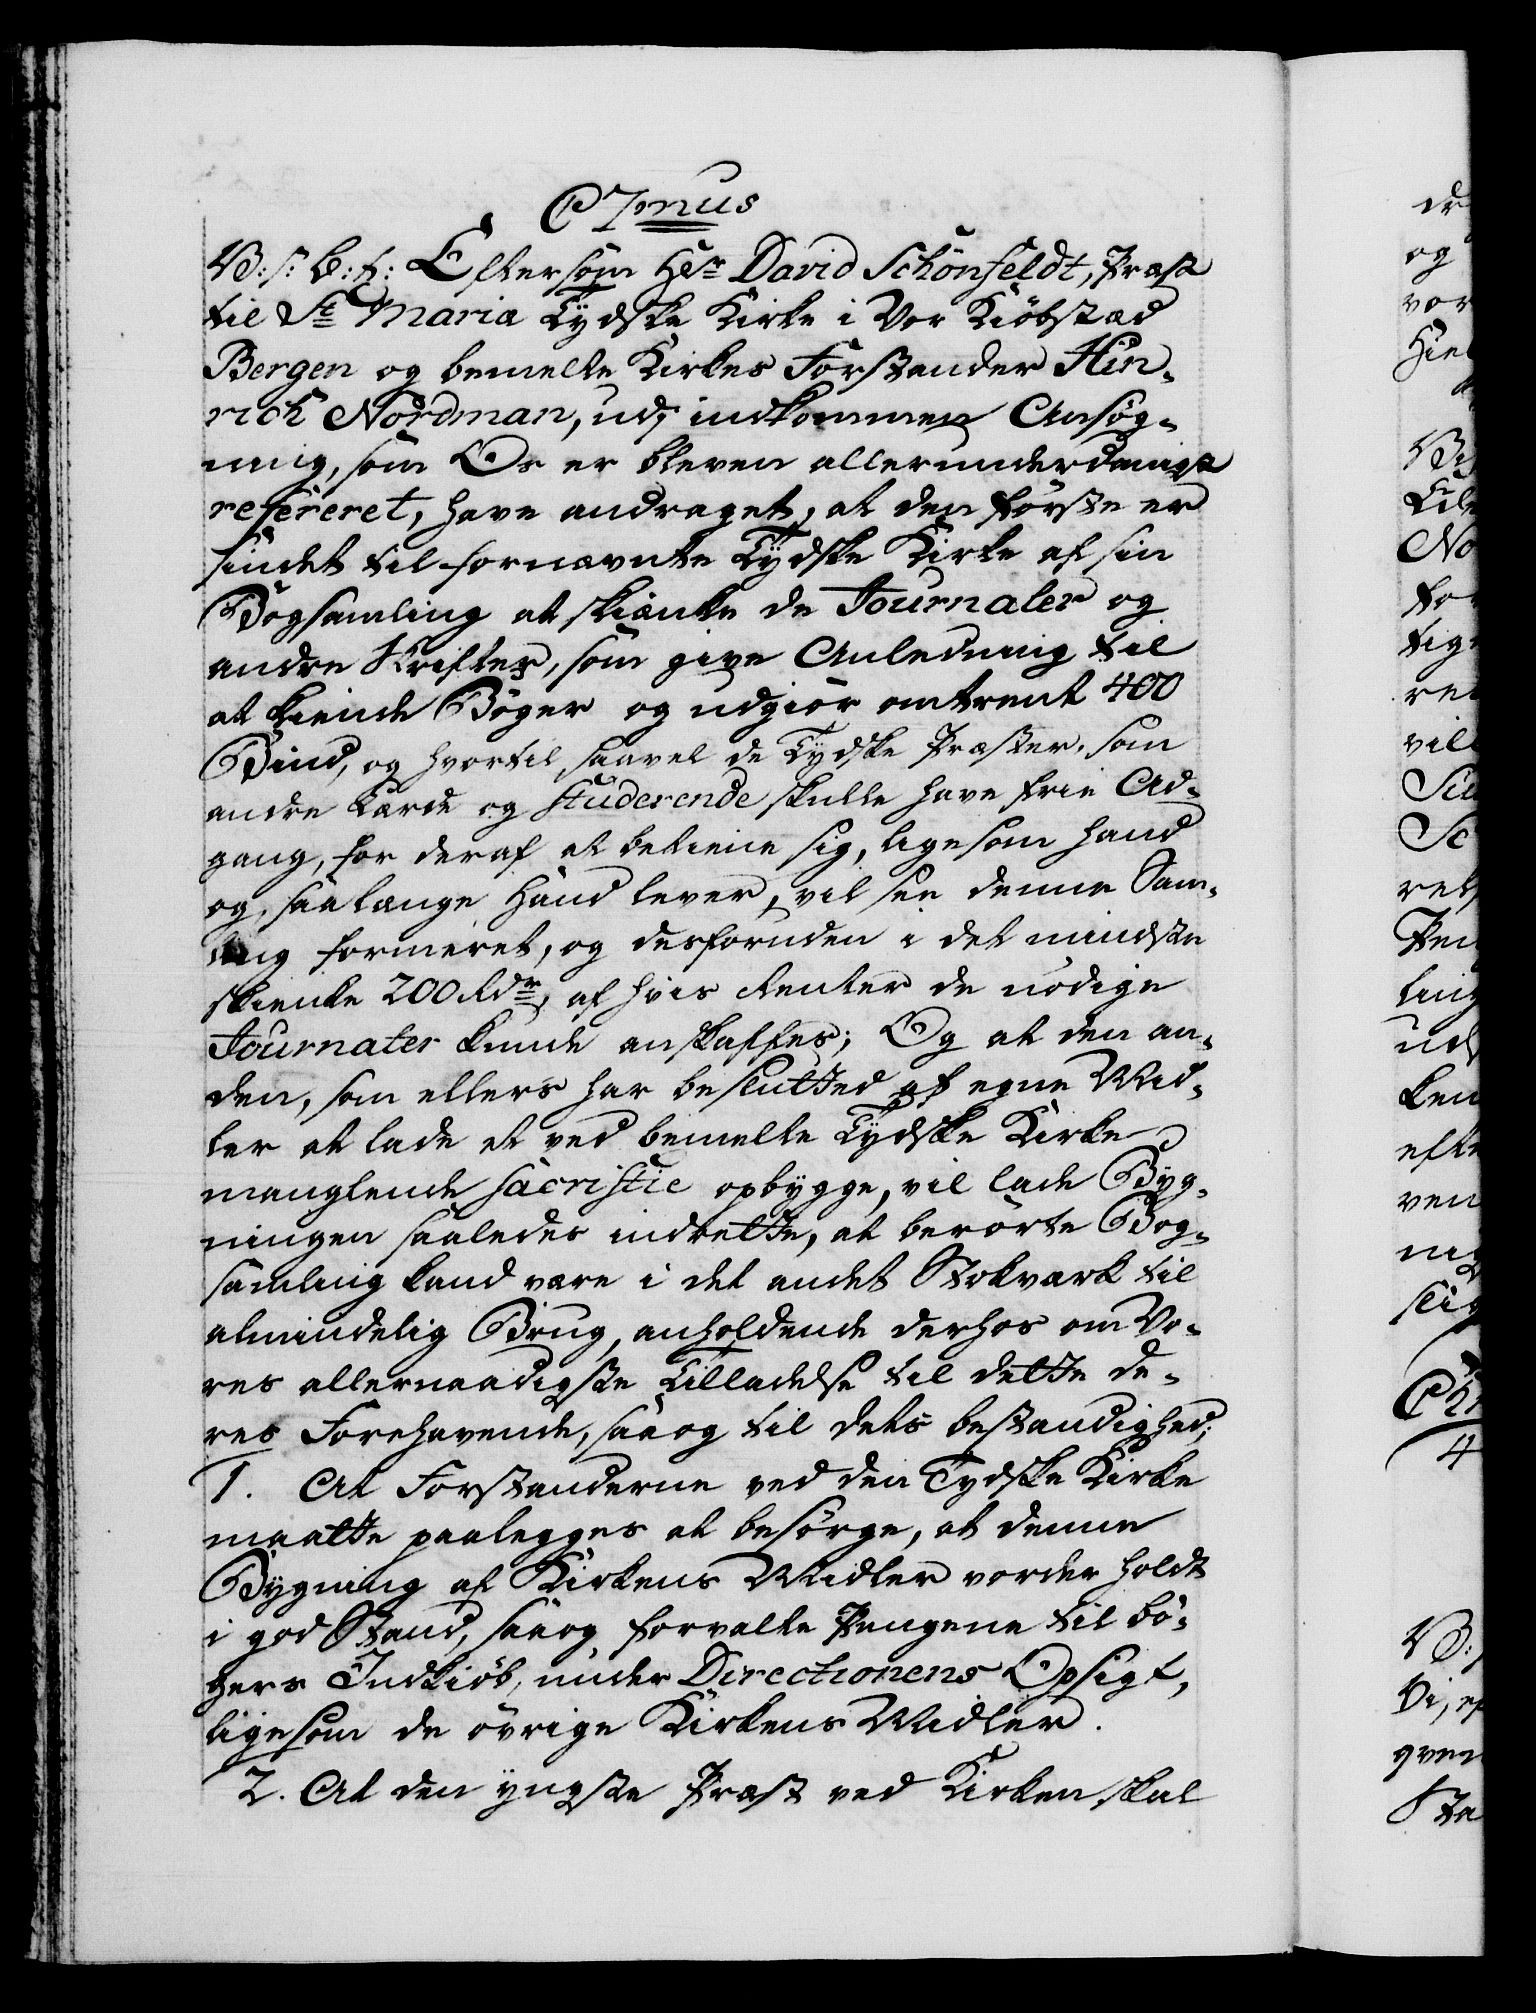 C7mus
V: s: G: t: Eftersom Hr David Schönfeldt, Præst
til St Maria Tydske Kirke i Vor Kiöbstæd
Bergen og bemelte Kirkes Forstander Hin-
rich Nordman, udj indkommen Ansög-
ning, som Os er bleven allerunderdanigst
refereret, have andraget, at den förste er
sindet til fornævnte Tydske Kirke af sin
Bogsamling at skiænke de Journaler og
andre Skrifter, som give Anledning til
at kiende Böger og udgiör omtrent 400
Bind, og hvortil saavel de Tydske Præster, som
andre Lærde og Studerende skulle have frie Ad-
gang, for deraf at betiene sig, ligesom hand
og, saalænge hand lever, vil see denne Sam-
ling formeret, og desforuden i det mindste
skiænke 200 Rdr, af hvis Renter de nödige
Journaler kunde anskaffes; Og at den an-
den, som ellers har besluttet af egne Mid-
ler at lade et ved bemelte Tydske Kirke
manglende Sacristie opbygge, vil lade Byg-
ningen saaledes indrette, at berörte Bog-
samling kand være i det andet Stokværk til
almindelig Brug, anholdende derhos om Vo-
res allernaadigste Tilladelse til dette de-
res Forehavende, saa og til dets bestandighed;
1. At Forstanderne ved den Tydske Kirke
maatte paalegges at besörge, at denne
Bygning af Kirkens Midler vorder holdt
i god Stand, saa og forvalte Pengene til Bö-
gers Indkiöb, under Directionens Opsigt,
ligesom de övrige Kirkens Midler.
2. At den yngste Præst ved Kirken skal